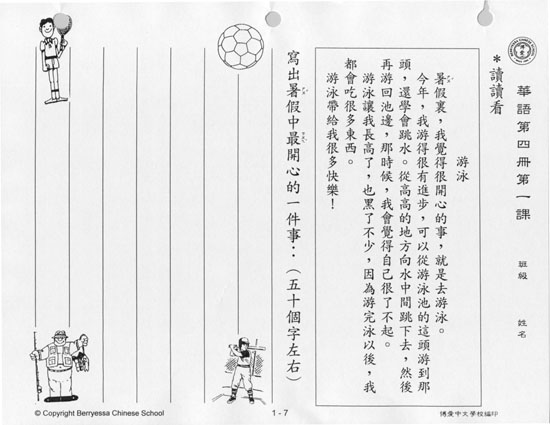 華語第四冊第一課 班級 姓名
*讀讀看
游泳
暑假裏，我覺得很開心的事，就是去游泳。
今年，我游得很有進步，可以從游泳池的這頭游到那
頭，還學會跳水。從高高的地方向水中間跳下去，然後
再游回池邊，那時候，我會覺得自己很了不起。
游泳讓我長高了，也黑了不少，因為游完泳以後，我
都會吃很多東西。
游泳帶給我很多快樂！
寫出暑假中最開心的一件事：（五十個字左右）
© Copyright Berryessa Chinese School
1 - 7
博愛中文學校編印